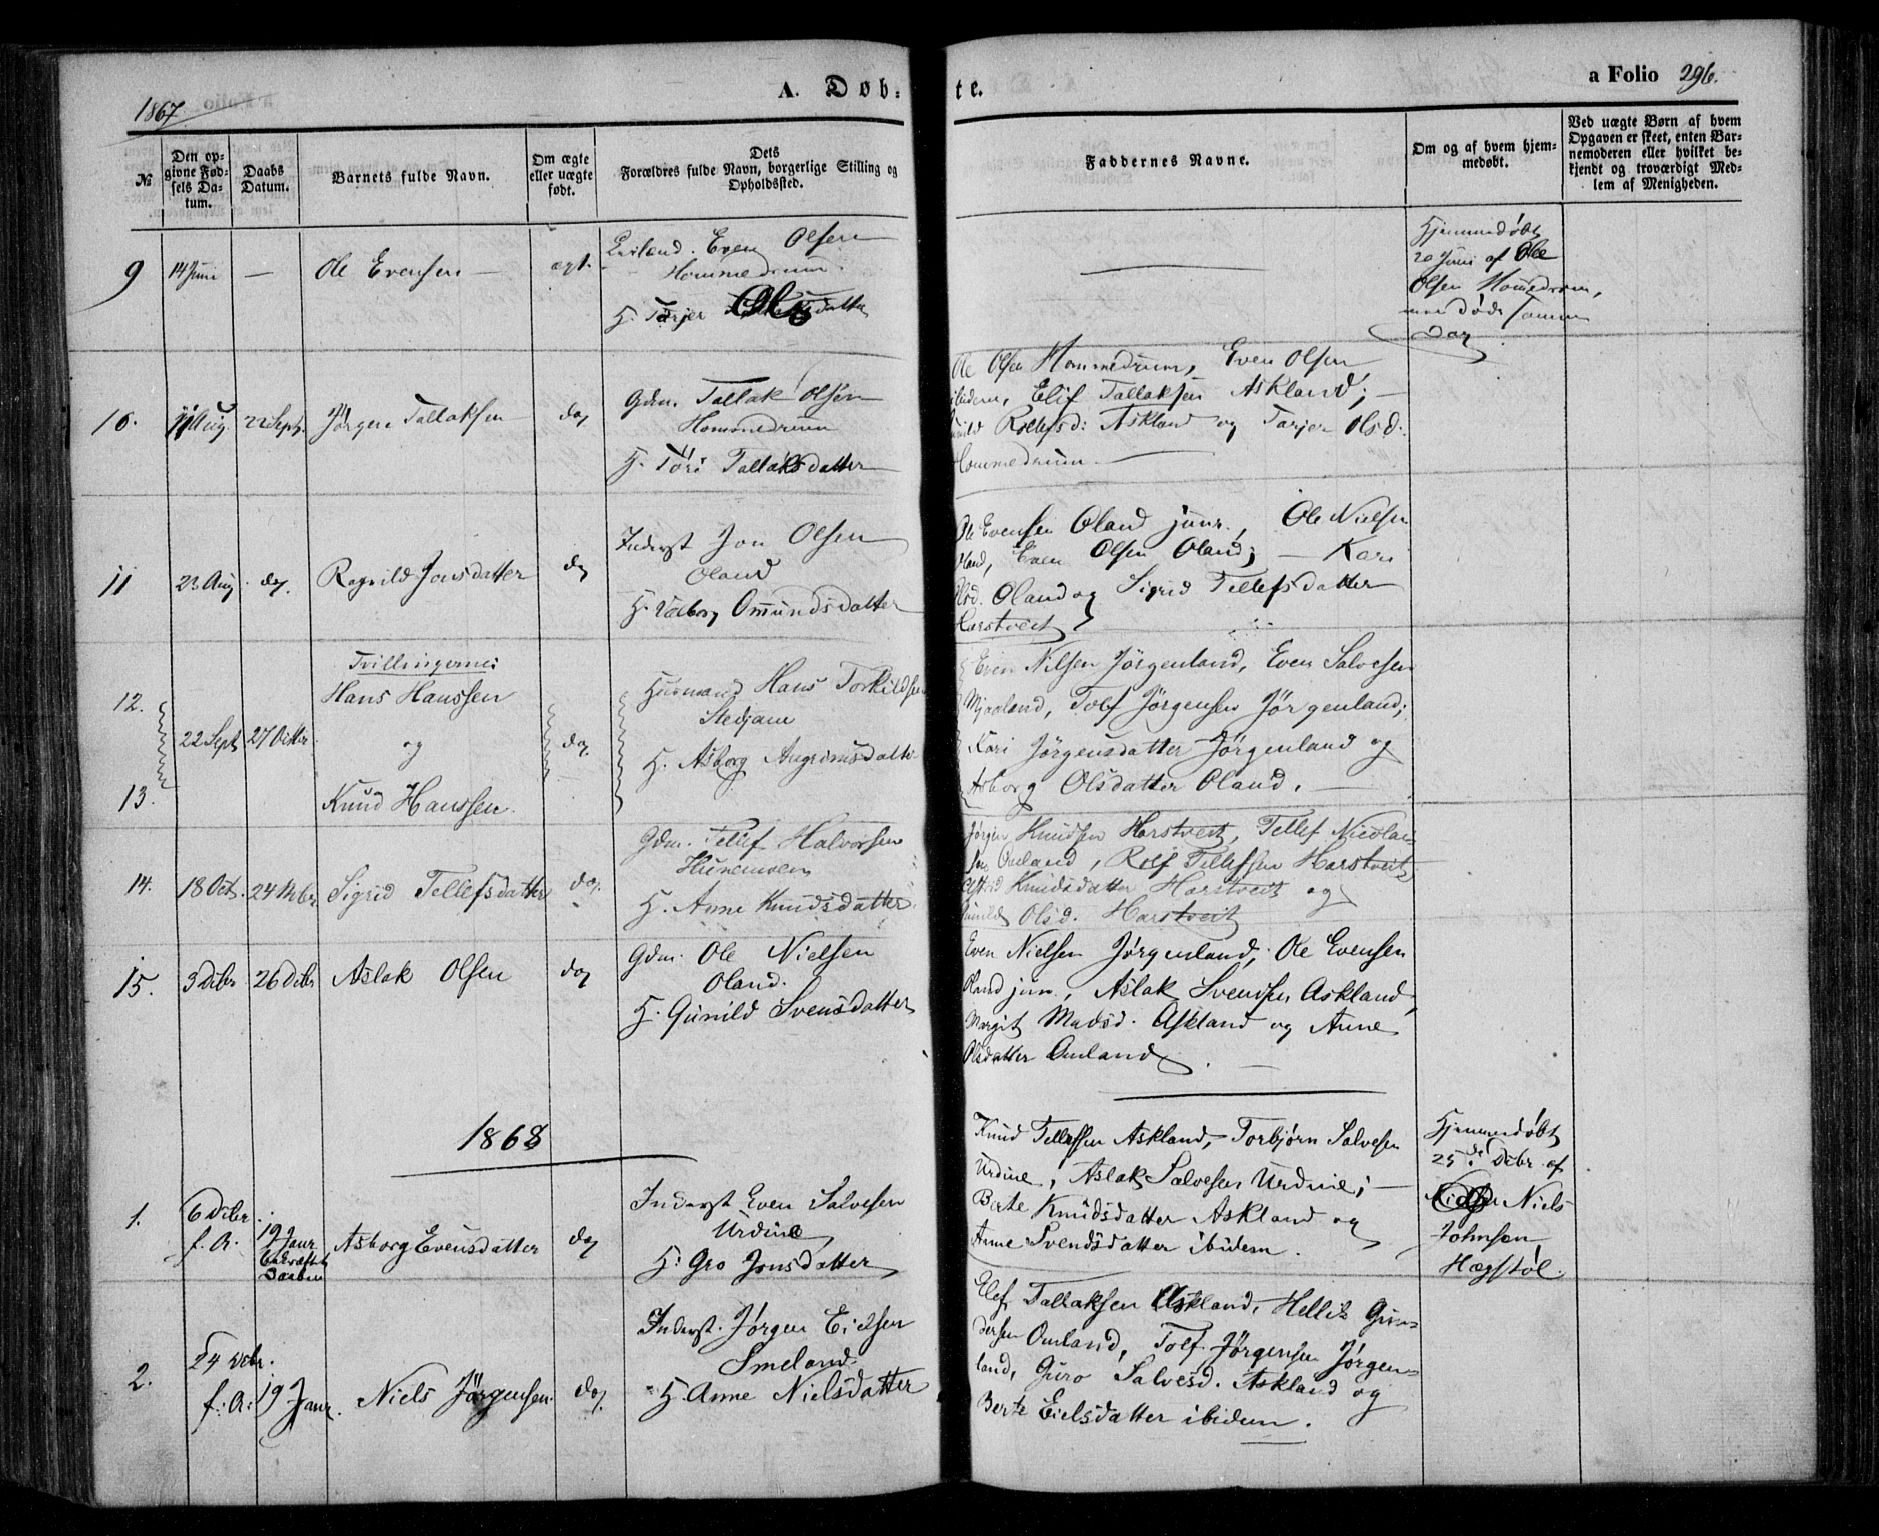 1867
A. Døb-
te.
a Folio 296.
№
Den op-
givne Fød-
sels Da-
tum.
Daabs
Datum.
Barnets fulde Navn.
Om ægte
eller uægte
født.
Dets
Forældres fulde Navn, borgerlige Stilling og
Opholdssted.
Faddernes Navne.
Om og af hvem hjem-
medøbt.
Ved uægte Børn af hvem
Opgaven er skeet, enten Bar-
nemoderen eller hvilket be-
kjendt og troværdigt Med-
lem af Menigheden.
9 14 Juni — Ole Evensen — ægt.
Even Olsen
Hommedrum
H. Tarjer Olsdatter
Hjemmedøbt
20 Juni af Ole
Olsen Homedrom,
men døde samme
Dag
10. 11 Aug. 22 Sept. Jørgen Tallaksen do
Gdm. Tallak Olsen
Hommedrum
H. Tori Tallaksdatter
Ole Olsen Hommedrum, Even Olsen
ibidem, Elif Tallaksen Askland; —
Gunild Rollefsd: Askland og Tarjer Olsd:
Hommedrum
11 23 Aug do. Ragnild Jonsdatter do
Inderst Jon Olsen
Oland
H. Valborg Omundsdatter
Ole Evensen Oland junr., Ole Nielsen
Oland, Even Olsen Oland; — Kari
Olsd. Oland og Sigrid Tellefsdatter
Harstveit
Tvillingerne:
12. Hans Hanssen
22 Sept 27 Octbr. og do.
13. Knud Hanssen.
Husmand Hans Torkildsen
Stedjam
H. Asborg Angrimsdatter
Even Nilsen Jørgenland, Even Salvesen
Mjaaland, Tolf Jørgensen Jørgenland;
Kari Jørgensdatter Jørgenland og
Asborg Olsdatter Oland. —
14. 18 Oct. 24 Nvbr. Sigrid Tellefsdatter do.
Gdm. Tellef Halvorsen
H. Anne Knudsdatter
Jørgen Knudsen Harstveit, Tellef Nicolai-
sen Omland, Rolf Tellefsen Harstveit
Knudsdatter Harstveit og
Gunild Olsd. Harstveit
15. 3 Debr 26 Debr Aslak Olsen do
Gdm. Ole Nielsen
Oland.
H. Gunild Svensdatter
Even Nielsen Jørgenland, Ole Evensen
Oland jun., Aslak Svendsen Askland,
Margit Madsd. Askland og Anne
Olsdatter Omland.
1868
1. 6 Debr.
f. A. 19 Janr Asborg Evensdatter do
Daaben
Inderst Even Salvesen
Urdine
H. Gro Jonsdatter
Knud Tellefsen Askland, Torbjørn Salvesen
Urdine, Aslak Salvesen Urdine; —
Berte Knudsdatter Askland og
Anne Svendsdatter ibidem.
Hjemmedøbt
25de Debr. af
Niels
Johnsen
Hægstøl.
2. 24 Debr.
f. A. 19 Janr. Niels Jørgensen do.
Inderst. Jørgen Eielsen
Smeland.
H. Anne Nielsdatter
Elef Tallaksen Askland, Hellik Gun-
dersen Omland, Tolf Jørgensen Jørgen-
land, Guro Salvesd. Askland og
Berte Eielsdatter ibidem.